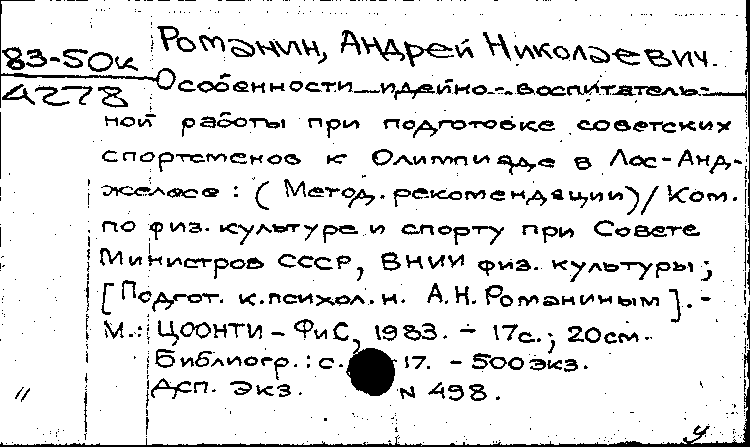 Романин, Андрей Николаевич.
83-50к
4278
Особенности идейно-воспитатель-
ной работы при подготовке советских
спортсменов к Олимпиаде в Лос-Анд-
желесе : ( Метод. рекомендации) / Ком.
по физ. культуре и спорту при Совете
Министров СССР, ВНИИ физ. культуры ;
[Подгот. к.психол.н. А.Н. Романиным]. -
М.: ЦООНТИ - ФиС, 1983. - 17с.; 20см.
Библиогр.: с. 17. - 500экз.
Деп. экз. N 498.